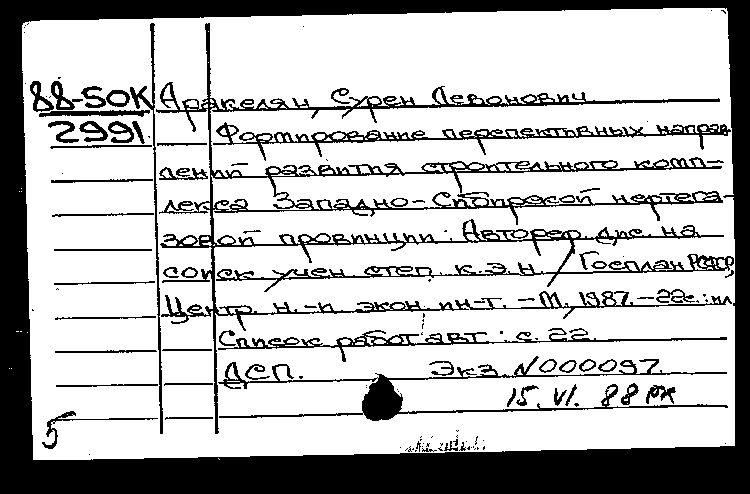 88-50К Аракелян, Сурен Левонович
2991 Формирование перспективных направ
лений развития строительного комп-
лекса Западно-Сибирской нефтега-
зовой провинции: Автореф. дис. на
соиск. учен. степ. к.э.н. / Госплан РСФСР,
Центр. н.-и. экон. ин-т. - М., 1987. - 22с.: ил.
Список работ авт.: с. 22.
ДСП. Экз. N000097.
15. VI. 88 РК
5